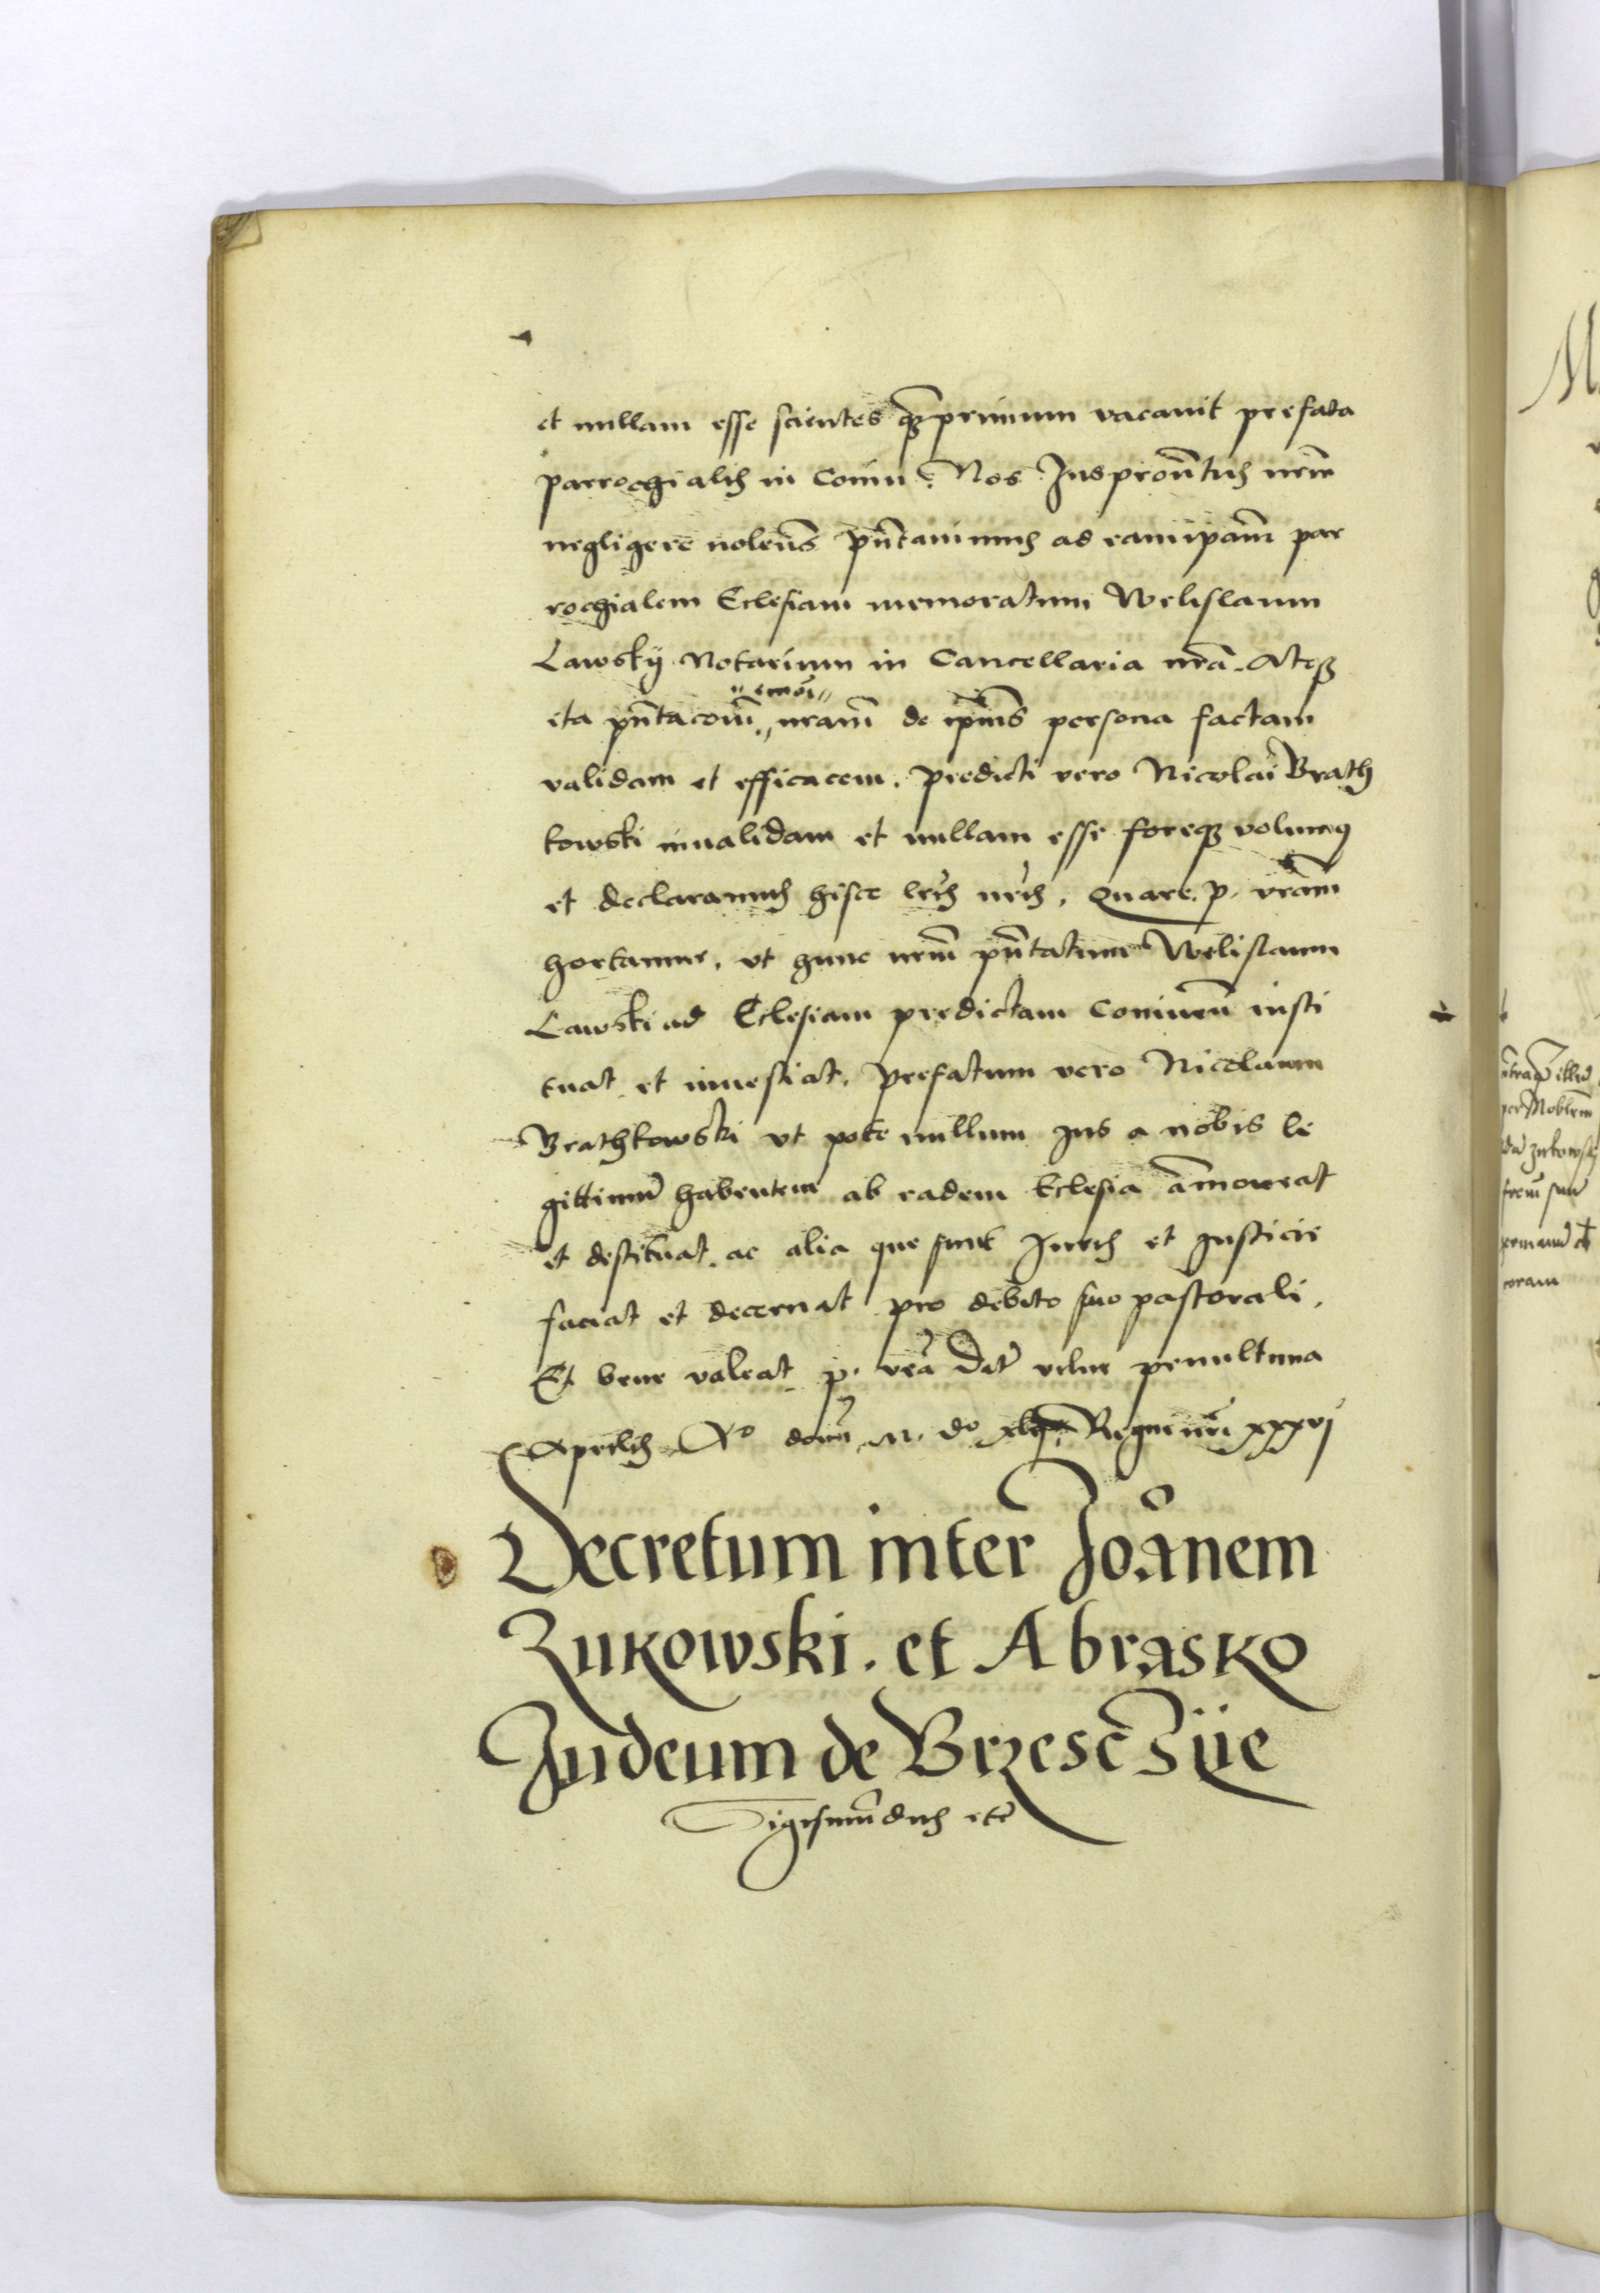 et nullam esse scientes q̃primum vacauit prefata
parrochialis in Coniu. Nos Jus prñtus nrm̃
negligere nolens prñtauimus ad eam ipam̃ par
rochialem Eclesiam memoratum Welislaum
Lawskij Notarium in Cancellaria nrã. Atq3
ita prñtacom̃ nram̃ de ipius persona factam
validam et efficacem. predicti vero Nicolai Brath
kowski inualidam et nullam esse foreq3 volum9
et declaramus hisce lrĩs nrĩs. Quare. p. vram̃
hortamur. vt hunc nrm̃ prñtatum Welislaum
Lawski ad Eclesiam predictam Coniueñ insti
tuat et inuestiat. prefatum vero Nicolaum
Brathkowski vt pote nullum Jus a nobis le
gittimũ habentem ab eadem Eclesia ãmoueat
et destituat. ac alia que sunt Juris et Justicie
faciat et decernat pro debito suo pastorali.
Et bene valeat p. vrã Dat̃ vilne penultima
Aprilis A° domĩ M. d° Regni nrĩ xxxvj
Decretum inter Joãnem
Zukowski. et Abrasko
Judeum de Brzescziie
Sigismũdus etc̃
ntraq3 illud
per Noblem̃
dũ Zukowski
suũ
coram